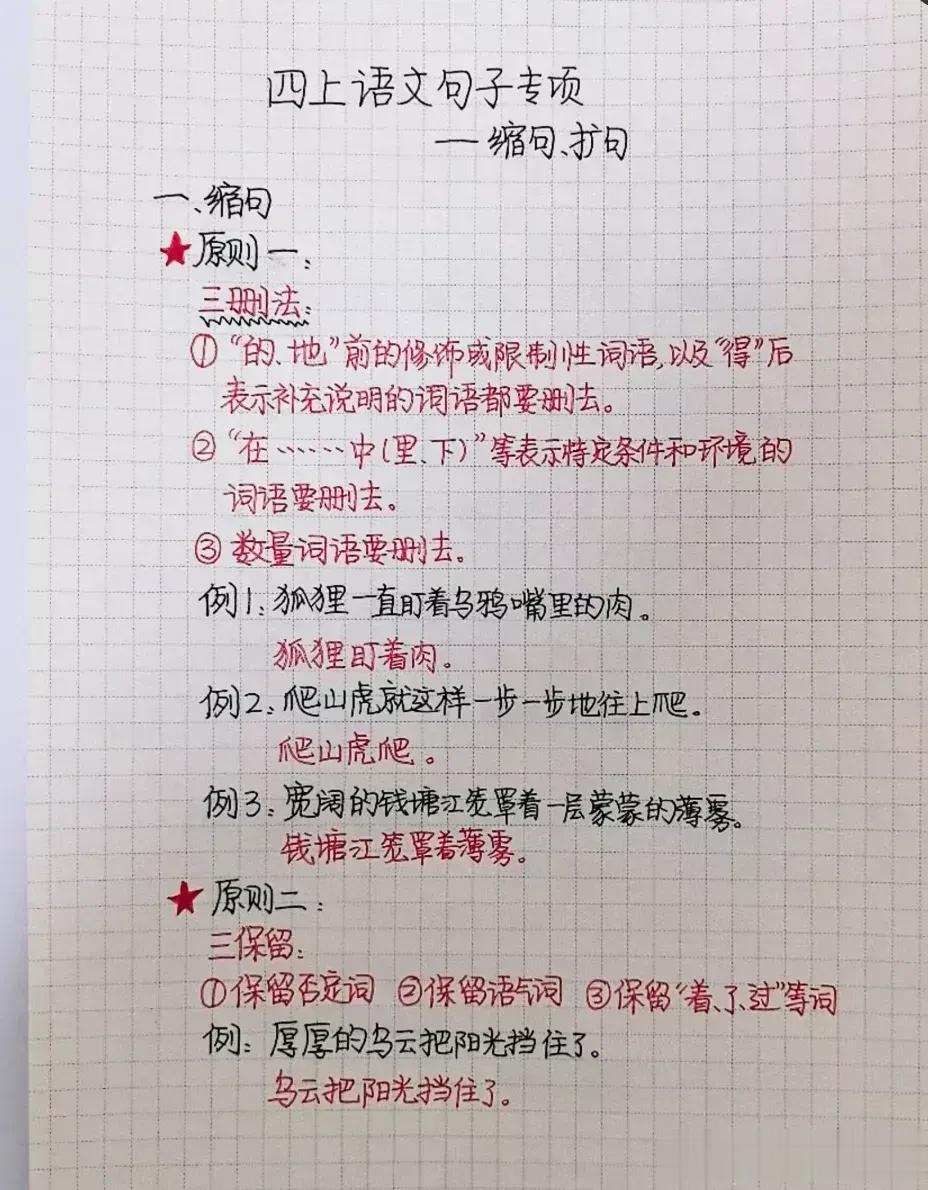 四上语文句子专项
—缩句、扩句
一、缩句
★原则一：
三删法：
①“的、地”前的修饰或限制性词语，以及“得”后
表示补充说明的词语都要删去。
②“在……中(里、下)”等表示特定条件和环境的
词语要删去。
③数量词语要删去。
例1：狐狸一直盯着乌鸦嘴里的肉。
狐狸盯着肉。
例2：爬山虎就这样一步一步地往上爬。
爬山虎爬。
例3：宽阔的钱塘江笼罩着一层蒙蒙的薄雾。
钱塘江笼罩着薄雾。
★原则二：
三保留：
①保留否定词 ②保留语气词 ③保留“着、了、过”等词
例：厚厚的乌云把阳光挡住了。
乌云把阳光挡住了。